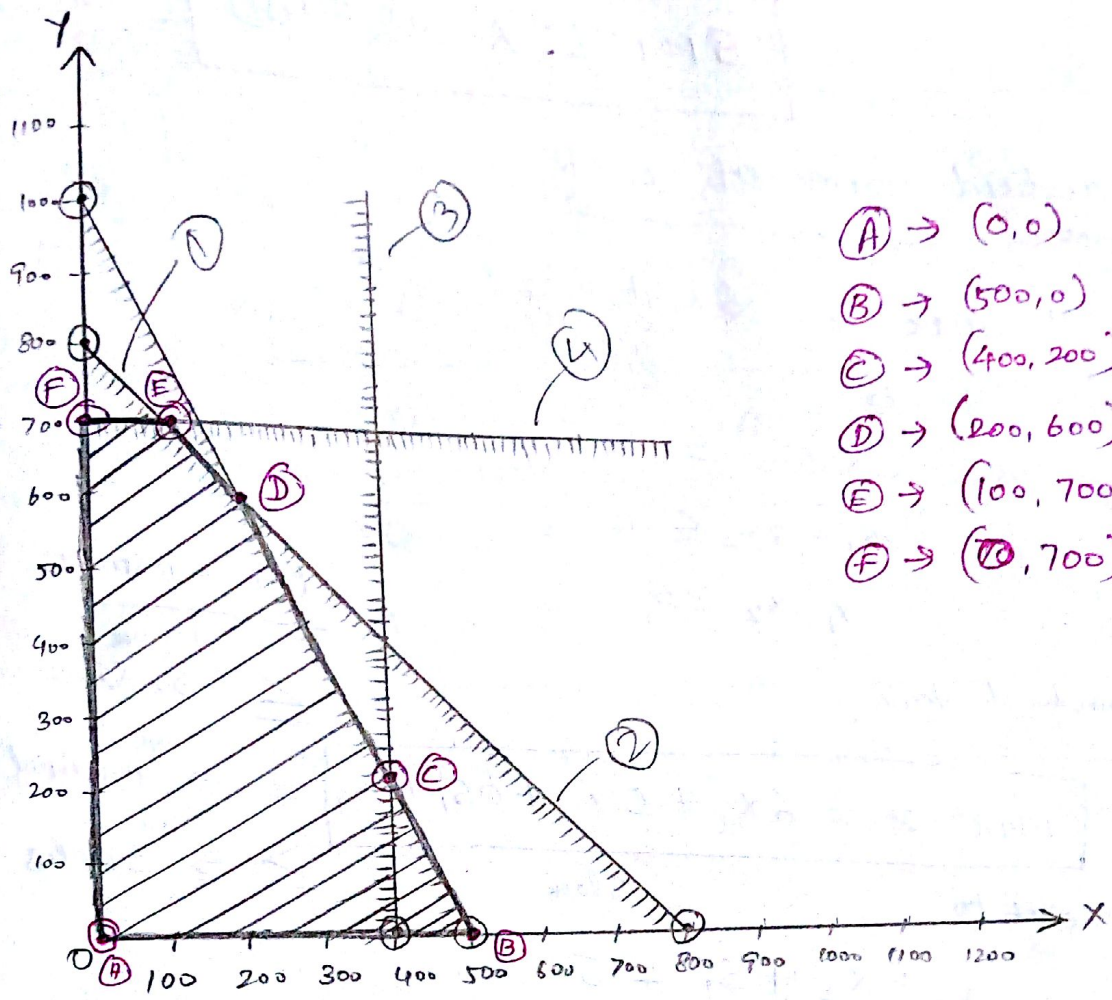 Y
1100
100
900
800
700
600
500
400
300
200
100
0
100 200 300 400 500 600 700 800 900 1000 1100 1200
X
①
②
③
④
Ⓐ
Ⓑ
Ⓒ
Ⓓ
Ⓔ
Ⓕ
Ⓐ → (0,0)
Ⓑ → (500,0)
Ⓒ → (400,200)
Ⓓ → (200,600)
Ⓔ → (100,700
Ⓕ → ( ,700)